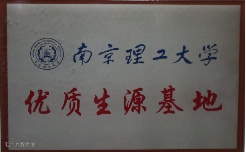 南京理工大学
优质生源基地